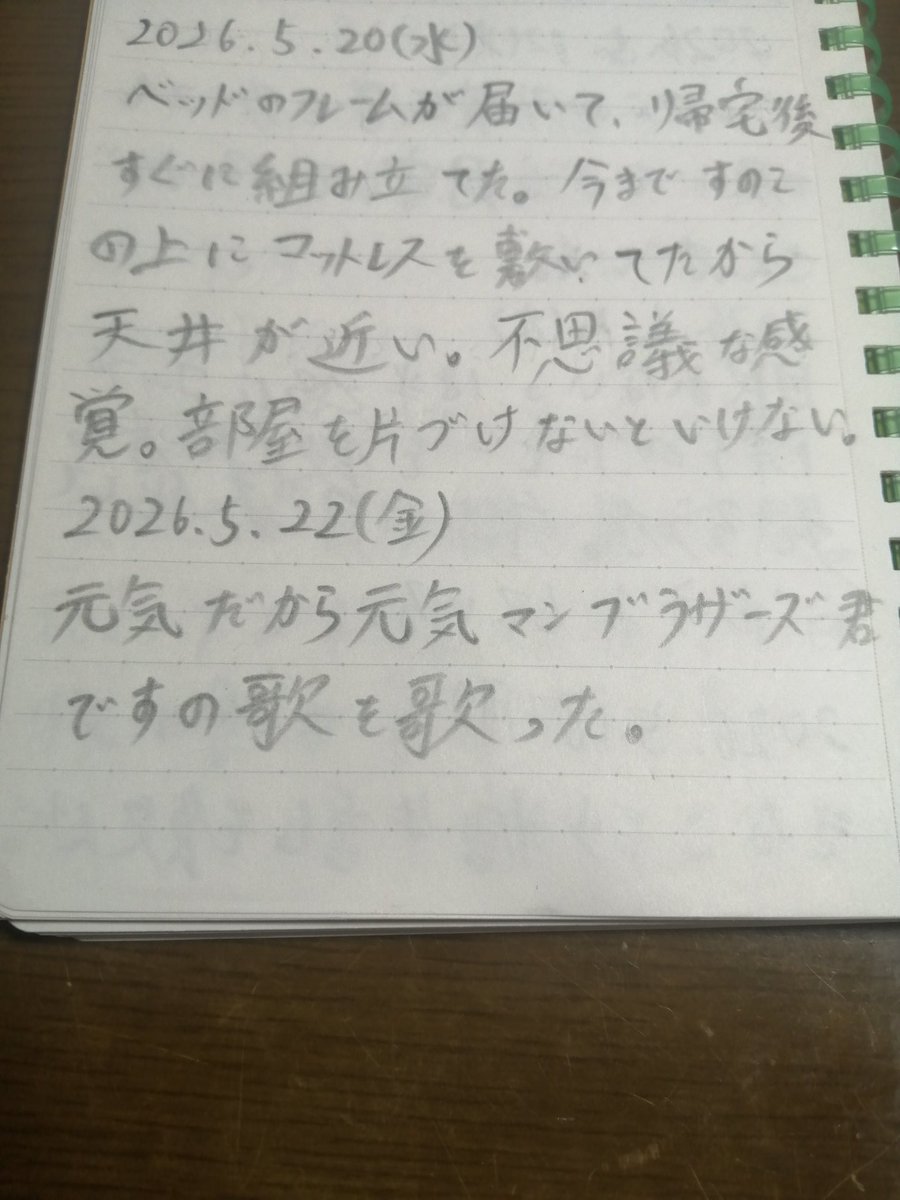 2026.5.20(水)
ベッドのフレームが届いて、帰宅後
すぐに組み立てた。今まですのこ
の上にマットレスを敷いてたから
天井が近い。不思議な感
覚。部屋を片づけないといけない。
2026.5.22(金)
元気だから元気マンブラザーズ君
ですの歌を歌った。